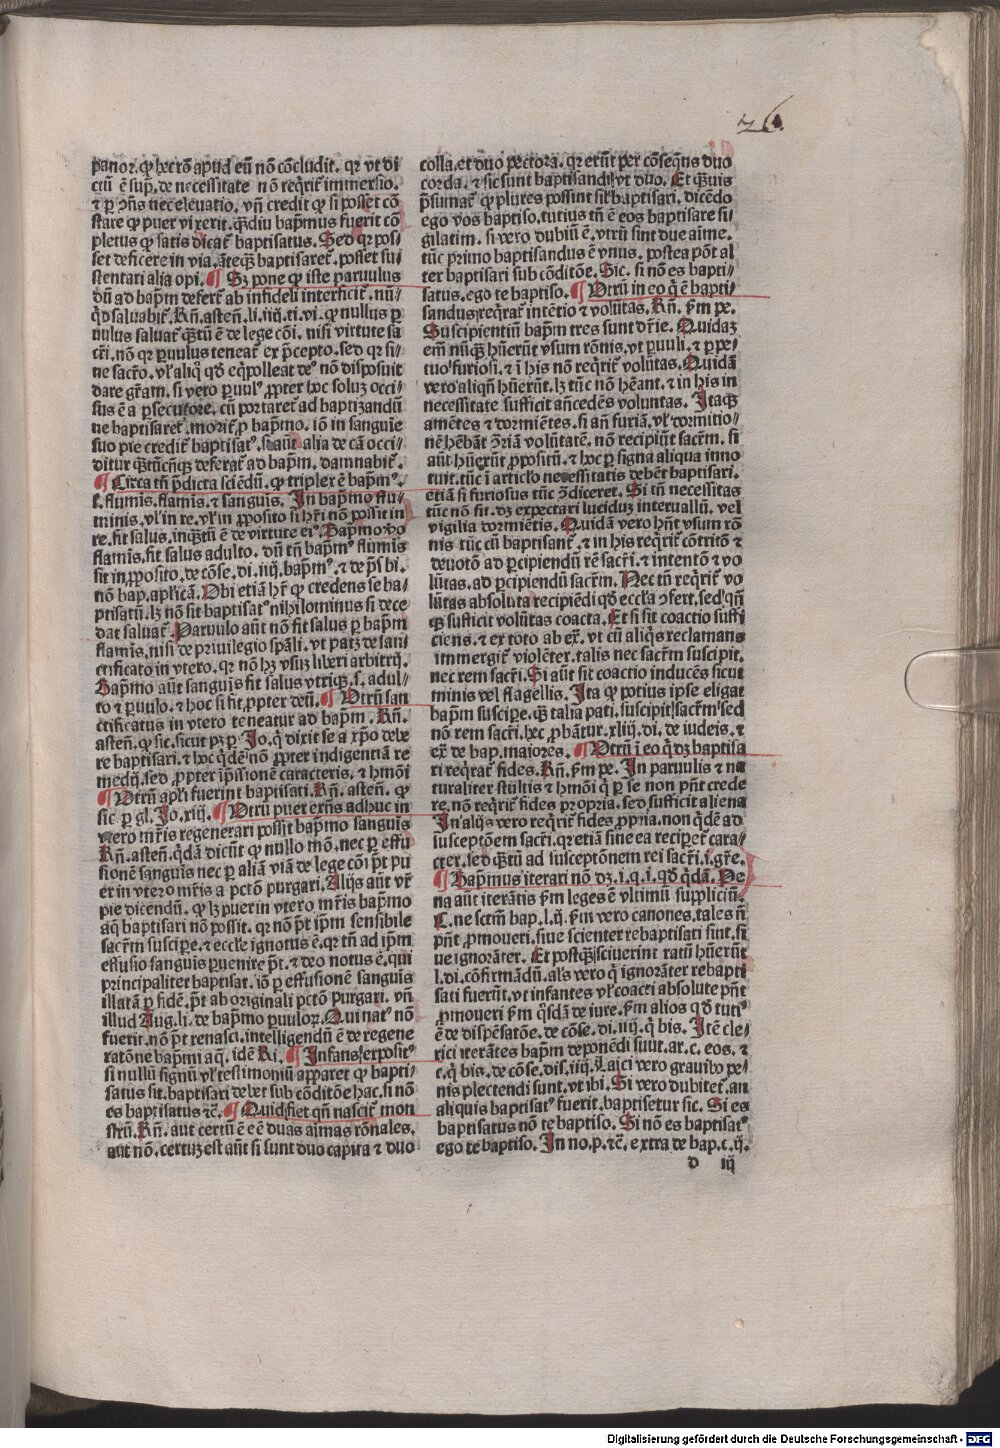 26.
panor. ꝙ hec rõ apud eũ nõ cõcludit. qr vt di
ctũ ē supͣ. de necessitate nõ reqͥrit᷑ immersio.
⁊ ꝑ ꝯñs nec eleuatio. vñ credit᷑ ꝙ si posset cõ
stare ꝙ puer vixerit. qͣ̃diu bapmus fuerit cõ
pletus ꝙ satis dicat᷑ baptisatus. Sed qr pos-
set deficere in via. ãteqͣ̃ baptisaret᷑. posset su
stentari alia opi. ¶ Sꝫ pone ꝙ iste paruulus
dũ ad bapm̃ defert᷑ ab infideli interficit᷑. nũ/
qͥd saluabit᷑. Rñ. asteñ. li. iiij. ti. vi. ꝙ nullus ꝑ
uulus saluat᷑ qͣ̃tũ ē de lege cõi. nisi virtute sa
cr̃i. nõ qr ꝑuulus teneat᷑ ex p̃cepto. sed qr si/
ne sacr̃o. vl̓ aliq̃ qd̓ eq̃polleat deꝰ nõ disposuit
dare gr̃am. si vero ꝑuulꝰ ꝓpter hoc soluꝫ occi/
sus ē a ꝑsecutore. cũ portaret᷑ ad baptizandũ
ne baptisaret᷑. morit᷑ ꝓ bapmo. iõ in sanguie
suo pie credit᷑ baptisatꝰ. si aũt alia de cã occi/
ditur qͣ̃tũcũqꝫ deferat᷑ ad bapm̃. damnabit᷑.
¶ Circa tñ p̃dicta sciẽdũ. ꝙ triplex ē bapmꝰ.
s. flumis. flamis. ⁊ sanguis. In bapmo flu/
minis. vl̓ in re. vl̓ in ꝓposito si hr̃i nõ possit in
re. fit salus. inqͣ̃tũ ē de virtute eiꝰ. Bapmo vo
flamis. fit salus adulto. dũ tñ bapmꝰ flumis
sit in ꝓposito. de cõse. di. iiij. bapmꝰ. ⁊ de p̃s bi.
nõ bap. aplicã. Ubi etiã hr̃ ꝙ credens se ba/
ptisatũ. lꝫ nõ sit baptisatꝰ nihilominus si dece
dat saluat᷑. Paruulo aũt nõ fit salus ꝑ bapm̃
flamis. nisi de priuilegio sp̃ali. vt patꝫ de san/
ctificato in vtero. qr nõ hꝫ vsuꝫ liberi arbitrij.
Bapmo aũt sanguis fit salus vtriqꝫ. s. adul/
to ⁊ ꝑuulo. ⁊ hoc si fit ꝓpter deũ. ¶ Utrũ san
ctificatus in vtero teneatur ad bapm̃. Rñ.
asteñ. ꝙ sic. sicut pꝫ ꝑ Jo. q̃ dixit se a xp̃o debe
re baptisari. ⁊ hoc q̃dẽ nõ ꝓpter indigentiã re
medij. sed ꝓpter ip̃ssionẽ caracteris. ⁊ hmõi
¶ Utrũ apl̓i fuerint baptisati. Rñ. asteñ. ꝙ
sic. ꝑ gl̓. Jo. xiij. ¶ Utrũ puer exñs adhuc in
vtero mr̃is regenerari possit bapmo sanguis
Rñ. asteñ. q̃dã dicũt ꝙ nullo mõ. nec ꝑ effu
sionẽ sanguis nec ꝑ aliã viã de lege cõi p̃t pu
er in vtero mr̃is a pctõ purgari. Alijs aũt vr̃
pie dicendũ. ꝙ lꝫ puer in vtero mr̃is bapmo
aq̃ baptisari nõ possit. qr nõ p̃t ip̃m sensibile
sacr̃m suscipe. ⁊ eccl̓e ignotus ē. qr tñ ad ip̃m
effusio sanguis ꝑuenire p̃t. ⁊ deo notus ē. qui
principaliter baptisat. iõ ꝑ effusionẽ sanguis
illatã ꝑ fidẽ. p̃t ab originali pctõ purgari. vñ
illud Aug. li. de bapmo ꝑuuloꝝ. Qui natꝰ nõ
fuerit. nõ p̃t renasci. intelligendũ ē de regene
ratõne bapmi aq̃. idẽ Ri. ¶ Infans expositꝰ
si nullũ signũ vl̓ testimoniũ apparet ꝙ bapti/
satus sit. baptisari debet sub cõditõe hac. si nõ
es baptisatus ⁊c̃. ¶ Quid fiet qñ nascit᷑ mon
strũ. Rñ. aut certũ ē eē duas aimas rõnales.
aut nõ. certuꝫ est aũt si sunt duo capita ⁊ duo
colla. et duo pectora. qr erũt per cõseqñs duo
corda. ⁊ sic sunt baptisandi vt duo. Et qͣ̃uis
p̃sumat᷑ ꝙ plures possint sil̓ baptisari. dicẽdo
ego vos baptiso. tutius tñ ē eos baptisare si/
gilatim. si vero dubiũ ē. vtrũ sint due aime.
tũc primo baptisandus ē vnus. postea põt al
ter baptisari sub cõditõe. Sic. si nõ es bapti/
satus. ego te baptiso. ¶ Utrũ in eo q̃ ē bapti/
sandus reqͥrat᷑ intẽtio ⁊ volũtas. Rñ. ẜm pe.
Suscipientiũ bapm̃ tres sunt dr̃ie. Quidaꝫ
em̃ nũqͣ̃ hũerũt vsum rõnis. vt ꝑuuli. ⁊ ꝑpe/
tuo furiosi. ⁊ ĩ his nõ reqͥrit᷑ volũtas. Quidã
vero aliqñ hũerũt. lꝫ tũc nõ hẽant. ⁊ in his in
necessitate sufficit añcedẽs voluntas. Itaqꝫ
amẽtes ⁊ dormiẽtes. si añ furiã. vl̓ dormitio/
nẽ hẽbãt ꝯriã volũtatẽ. nõ recipiũt sacr̃m. si
aũt hũerũt ꝓpositũ. ⁊ hoc ꝑ signa aliqua inno
tuit. tũc ĩ articl̓o necessitatis debẽt baptisari.
etiã si furiosus tũc ꝯdiceret. Si tñ necessitas
tũc nõ sit. dꝫ expectari luciduꝫ interuallũ. vel
vigilia dormiẽtis. Quidã vero hñt vsum rõ
nis tũc cũ baptisant᷑. ⁊ in his reqͥrit᷑ cõtritõ ⁊
deuotõ ad ꝑcipiendũ rẽ sacr̃i. ⁊ intentõ ⁊ vo
lũtas. ad ꝑcipiendũ sacr̃m. Nec tñ reqͥrit᷑ vo
lũtas absoluta recipiẽdi qd̓ eccl̓a ꝯfert. sed qñ
qꝫ sufficit volũtas coacta. Et si sit coactio suffi
ciens. ⁊ ex toto ab exͣ. vt cũ aliqͥs reclamans
immergit᷑ violẽter. talis nec sacr̃m suscipit.
nec rem sacr̃i. Si aũt sit coactio inducẽs sicut
minis vel flagellis. Ita ꝙ potius ipse eligat
bapm̃ suscipe. qͣ̃ talia pati. suscipit sacr̃m sed
nõ rem sacr̃i. hec ꝓbãtur. xliij. di. de iudeis. ⁊
ex̃ de bap. maiores. ¶ Utrũ ĩ eo q̃ dꝫ baptisa
ri reqͥrat᷑ fides. Rñ. ẜm pe. In paruulis ⁊ na
turaliter stultis ⁊ hmõi q̃ ꝑ se non pñt crede
re. nõ reqͥrit᷑ fides propria. sed sufficit aliena
In alijs vero reqͥrit᷑ fides ꝓpria. non q̃dẽ ad
susceptõem sacr̃i. qr etiã sine ea reciperet᷑ cara/
cter. sed qͣ̃tũ ad susceptõnem rei sacr̃i. i. gr̃e.
¶ Bapmus iterari nõ dꝫ. i. q. i. qd̓ q̃dã. Pe
na aũt iterãtis ẜm leges ē vltimũ suppliciũ.
C. ne sctm̃ bap. l. ij. ẜm vero canones. tales ñ
pñt ꝓmoueri. siue scienter rebaptisati sint. si
ue ignorãter. Et postqͣ̃ sciuerint ratũ hũerũt
l. di. cõfirmãdũ. al̓s vero q̃ ignorãter rebapti
sati fuerũt. vt infantes vl̓ coacti absolute pñt
ꝓmoueri ẜm q̃sdã de iure. ẜm alios qd̓ tutiꝰ
ē de dispẽsatõe. de cõse. di. iiij. q̃ bis. Itẽ cle/
rici iterãtes bapm̃ deponẽdi sunt. ar. c. eos. ⁊
c. q̃ bis. de cõse. dis. iiij. Laici vero grauibꝰ pe/
nis plectendi sunt. vt ibi. Si vero dubitet᷑. an
aliquis baptisatꝰ fuerit. baptisetur sic. Si es
baptisatus nõ te baptiso. Si nõ es baptisatꝰ
ego te baptiso. In no. p. ⁊c̃. extra de bap. c. ij.
d iij
Digitalisierung gefördert durch die Deutsche Forschungsgemeinschaft - DFG